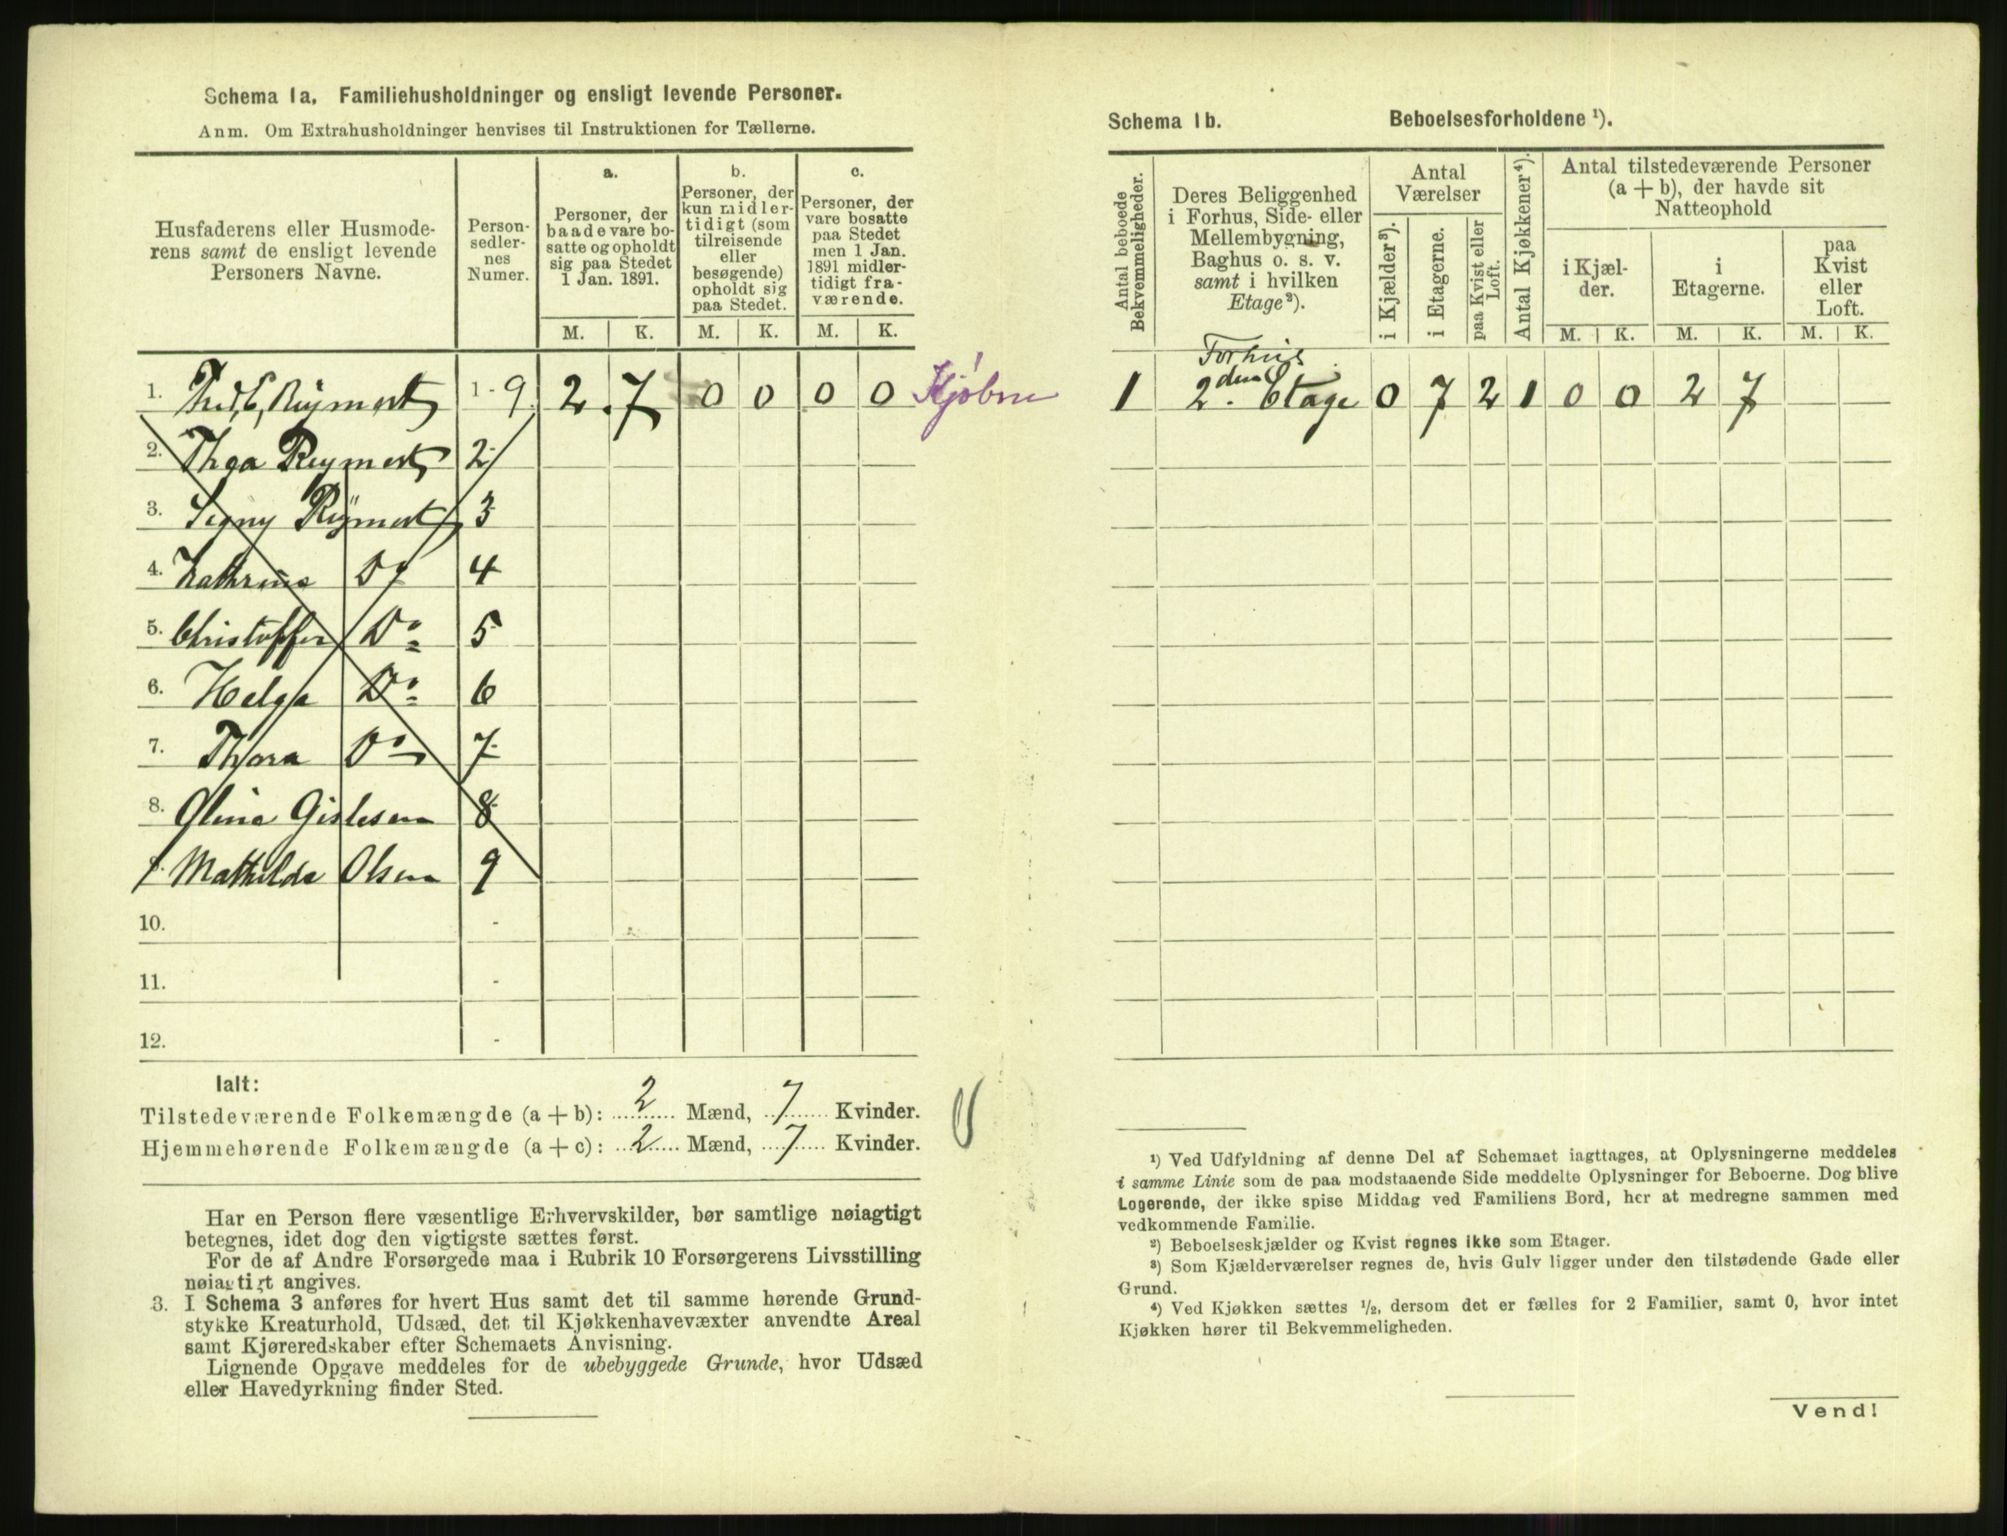 Schema 1a. Familiehusholdninger og ensligt levende Personer.
Anm. Om Extrahusholdninger henvises til Instruktionen for Tællerne.
Husfaderens eller Husmode-
rens samt de ensligt levende
Personers Navne.
Person-
sedler-
nes
Numer.
a.
Personer, der
baade vare bo-
satte og opholdt
sig paa Stedet
1 Jan. 1891.
b.
Personer, der
kun midler-
tidigt (som
tilreisende
eller
besøgende)
opholdt sig
paa Stedet.
c.
Personer, der
vare bosatte
paa Stedet
men 1 Jan.
1891 midler-
tidigt fra-
værende.
M. K. M. K. M. K.
1. Reymert 1-9 2 7 0 0 0 0
2. Thea Reymert 2
3. Signy Reymert 3
4. Kathrine Do 4
5. Christoffer Do 5
6. Helga Do 6
7. Thora Do 7
8. Oline Gislesen 8
9. Mathilde Olsen 9
10. -
11. -
12. -
Ialt:
Tilstedeværende Folkemængde (a + b): 2 Mænd, 7 Kvinder.
Hjemmehørende Folkemængde (a + c): 2 Mænd, 7 Kvinder.
Har en Person flere væsentlige Erhvervskilder, bør samtlige nøiagtigt
betegnes, idet dog den vigtigste sættes først.
For de af Andre Forsørgede maa i Rubrik 10 Forsørgerens Livsstilling
nøiagtigt angives.
3. I Schema 3 anføres for hvert Hus samt det til samme hørende Grund-
stykke Kreaturhold, Udsæd, det til Kjøkkenhavevæxter anvendte Areal
samt Kjøreredskaber efter Schemaets Anvisning.
Lignende Opgave meddeles for de ubebyggede Grunde, hvor Udsæd
eller Havedyrkning finder Sted.
Schema 1b. Beboelsesforholdene ¹).
Antal beboede
Bekvemmeligheder.
Deres Beliggenhed
i Forhus, Side- eller
Mellembygning,
Baghus o. s. v.
samt i hvilken
Etage²).
Antal
Værelser
i Kjælder³).
i Etagerne.
paa Kvist eller
Loft.
Antal Kjøkkener⁴).
Antal tilstedeværende Personer
(a + b), der havde sit
Natteophold
i Kjæl-
der.
i
Etagerne.
paa
Kvist
eller
Loft.
M. K. M. K. M. K.
Forhus
1 2den Etage 0 7 2 1 0 0 2 7
¹) Ved Udfyldning af denne Del af Schemaet iagttages, at Oplysningerne meddeles
i samme Linie som de paa modstaaende Side meddelte Oplysninger for Beboerne. Dog blive
Logerende, der ikke spise Middag ved Familiens Bord, her at medregne sammen med
vedkommende Familie.
²) Beboelseskjælder og Kvist regnes ikke som Etager.
³) Som Kjælderværelser regnes de, hvis Gulv ligger under den tilstødende Gade eller
Grund.
⁴) Ved Kjøkken sættes ½, dersom det er fælles for 2 Familier, samt 0, hvor intet
Kjøkken hører til Bekvemmeligheden.
Vend!